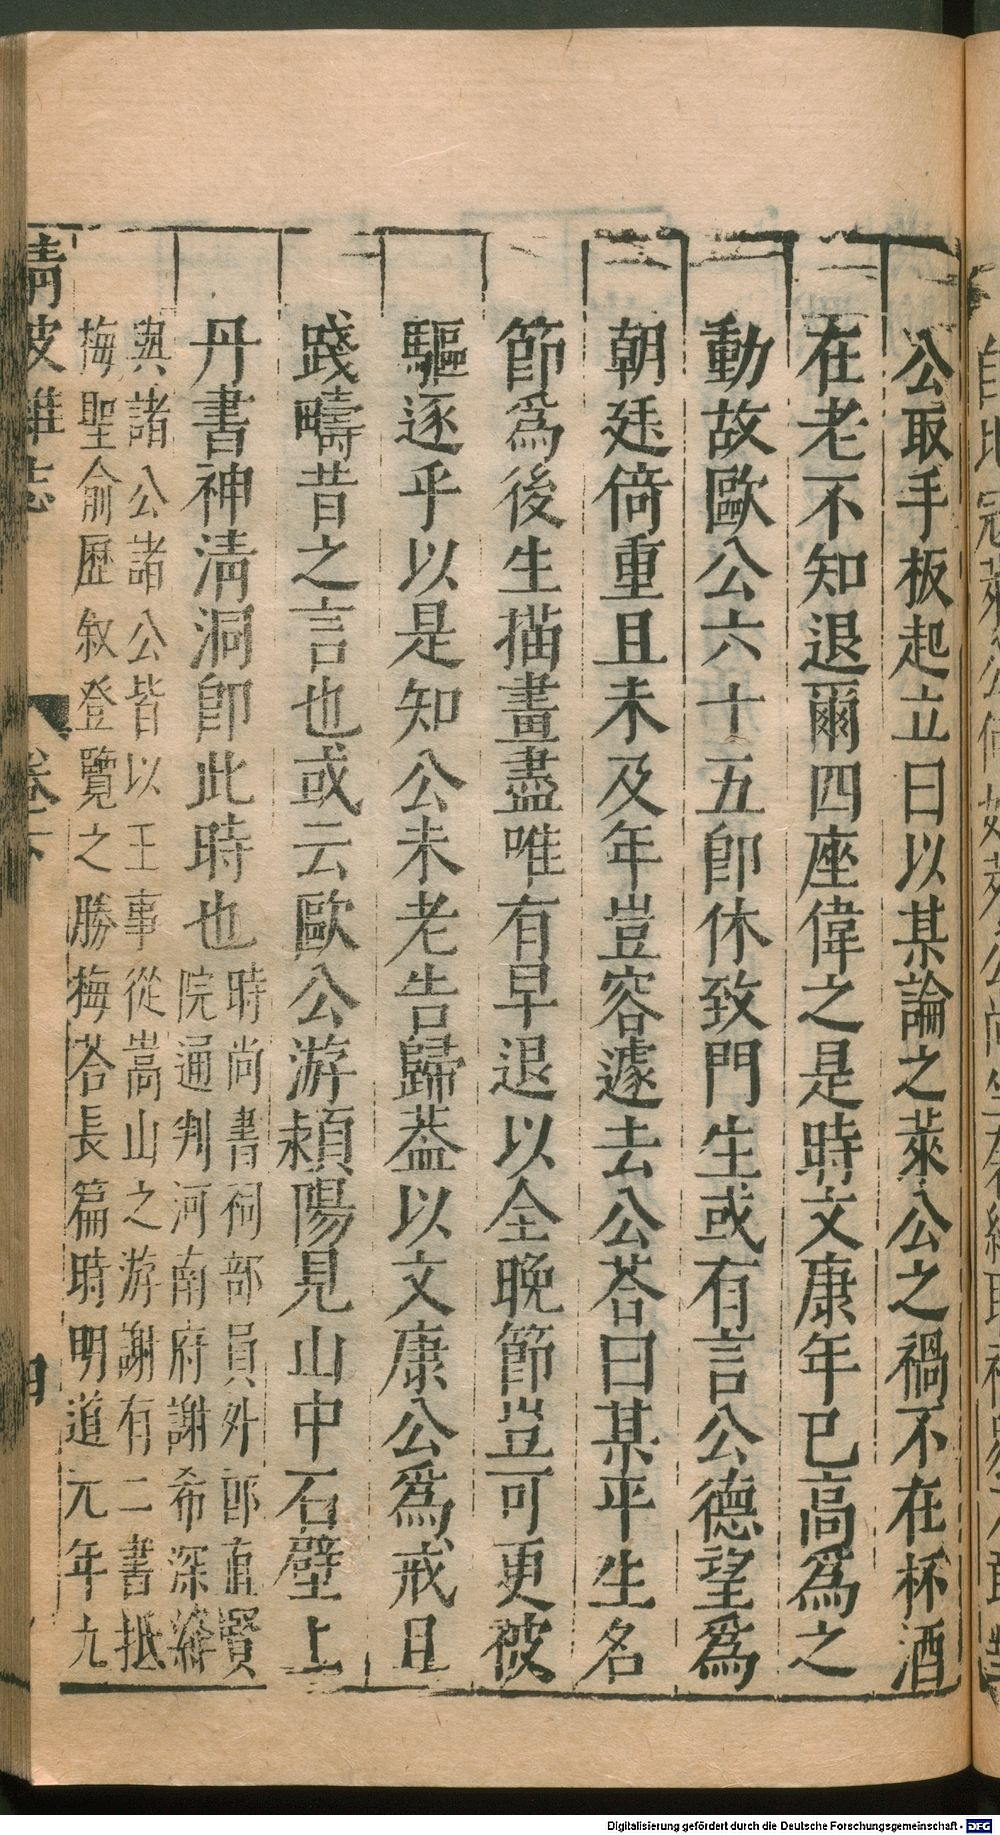 公取手板起立曰以某論之萊公之禍不在杯酒
在老不知退爾四座偉之是時文康年已高爲之
動故歐公六十五卽休致門生或有言公德望爲
朝廷倚重且未及年豈容遽去公荅曰某平生名
節爲後生描畫盡唯有早退以全晚節豈可更被
驅逐乎以是知公未老告歸葢以文康公爲戒且
踐疇昔之言也或云歐公游頴陽見山中石壁上
丹書神淸洞卽此時也
時尚書祠部員外郎直賢
院通判河南府謝希深絳
與諸公諸公皆以王事從嵩山之游謝有二書抵
梅聖俞歷叙登覽之勝梅荅長篇時明道元年九
淸波雜志
卷下
四
Digitalisierung gefördert durch die Deutsche Forschungsgemeinschaft - DFG